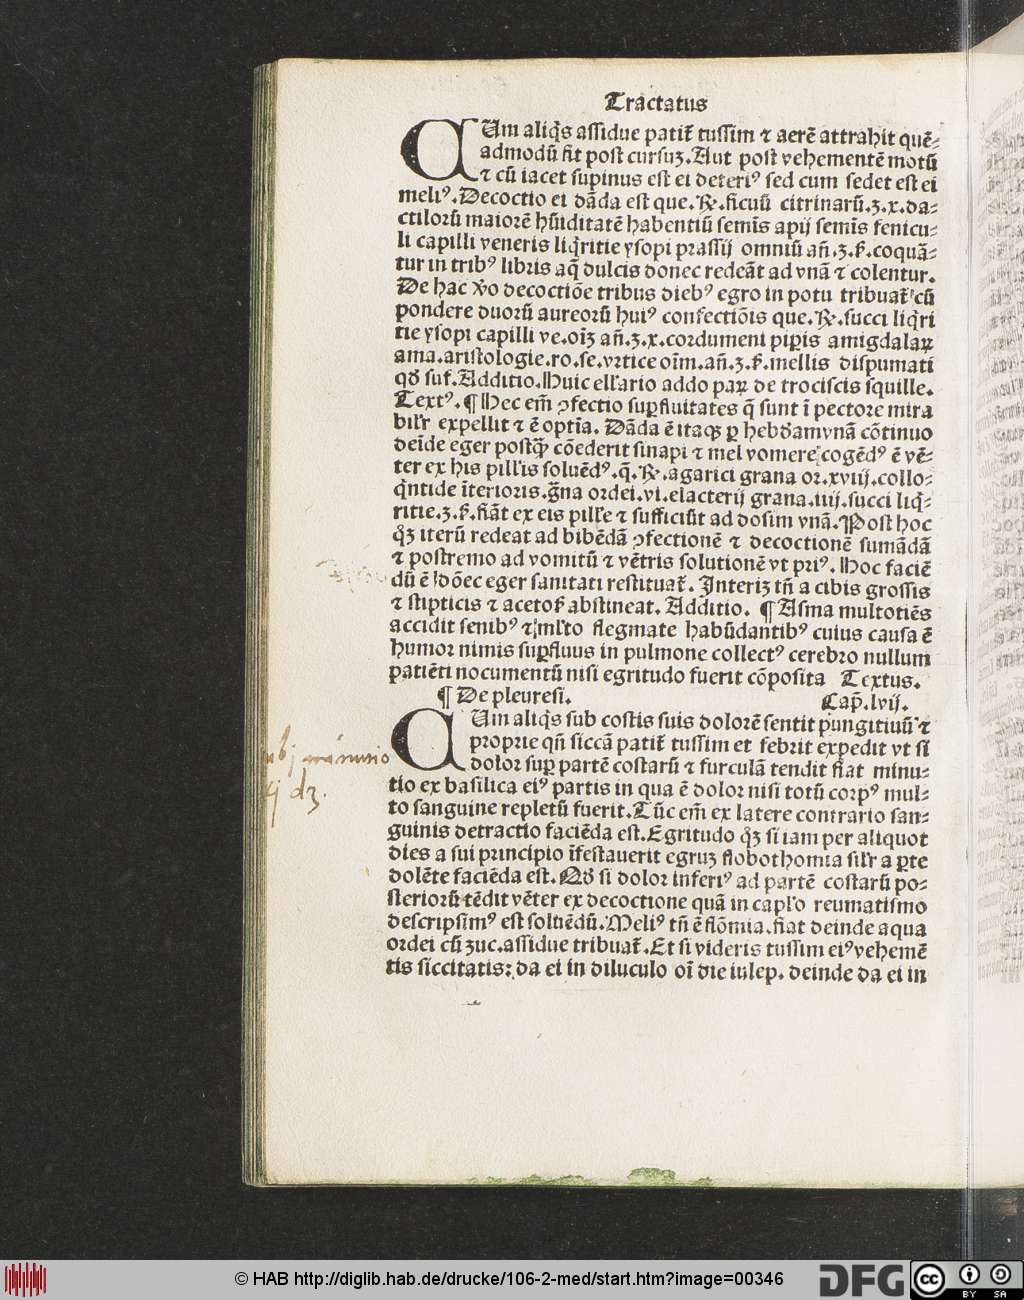 Tractatus
CUm aliq̃s assidue patit̃ tussim ⁊ aerẽ attrahit quẽ-
admodũ fit post cursuʒ. Aut post vehementẽ motũ
⁊ cũ iacet supinus est ei deteriꝰ sed cum sedet est ei
meliꝰ. Decoctio ei dãda est que. ℞. ficuũ citrinarũ.ʒ.x.da-
ctilorũ maiorẽ hũiditatẽ habentiũ semĩs apij semĩs fenicu-
li capilli veneris liq̃ritie ysopi prassij omniũ añ.ʒ.ẜ.coquã-
tur in tribꝰ libris aq̃ dulcis donec redeãt ad vnã ⁊ colentur.
De hac ṽo decoctiõe tribus diebꝰ egro in potu tribuat̃ cũ
pondere duorũ aureorũ huiꝰ confectiõis que. ℞. succi liq̃ri
tie ysopi capilli ve.oĩʒ añ.ʒ.x.cordumeni pipis amigdalaꝝ
ama.aristologie.ro.se.vrtice oĩm.añ.ʒ.ẜ.mellis dispumati
qđ suf. Additio. Huic ell'ario addo paꝝ de trociscis squille.
Textꝰ. ¶ Hec em̃ ꝯfectio supfluitates q̃ sunt ĩ pectore mira
bil'r expellit ⁊ ẽ optĩa. Dãda ẽ itaqʒ p hebđamvnã cõtinuo
deĩde eger postq̃ cõederit sinapi ⁊ mel vomere cogẽdꝰ ẽ vẽ-
ter ex his pill'is soluẽdꝰ.q̃. ℞. agarici grana or.xviij.collo-
q̃ntide ĩterioris.g̃na ordei.vi.elacterij grana.iiij.succi liq̃-
ritie.ʒ.ẜ.fiãt ex eis pill'e ⁊ sufficiũt ad dosim vnã. Post hoc
q̃ʒ iterũ redeat ad bibẽdã ꝯfectionẽ ⁊ decoctionẽ sumãdã
⁊ postremo ad vomitũ ⁊ vẽtris solutionẽ vt priꝰ. Hoc faciẽ
dũ ẽ dõec eger sanitati restituat̃. Interiʒ tñ a cibis grossis
⁊ stipticis ⁊ acetoẜ abstineat. Additio. ¶ Asma multotiẽs
accidit senibꝰ ⁊ ml'to flegmate habũdantibꝰ cuius causa ẽ
humor nimis supfluus in pulmone collectꝰ cerebro nullum
patiẽti nocumentũ nisi egritudo fuerit cõposita Textus.
¶ De pleuresi. Cap̃. lvij.
CUm aliq̃s sub costis suis dolorẽ sentit pungitiuũ ⁊
proprie qñ siccã patit̃ tussim et febrit expedit vt si
dolor sup partẽ costarũ ⁊ furculã tendit fiat minu-
tio ex basilica eiꝰ partis in qua ẽ dolor nisi totũ corpꝰ mul-
to sanguine repletũ fuerit. Tũc em̃ ex latere contrario san-
guinis detractio faciẽda est. Egritudo q̃ʒ si iam per aliquot
dies a sui principio ĩfestauerit egruʒ flobothomia sil'r a pte
dolẽte faciẽda est. Qđ si dolor inferiꝰ ad partẽ costarũ po-
steriorũ tẽdit vẽter ex decoctione quã in capl'o reumatismo
descripsimꝰ est soluẽdũ. Meliꝰ tñ ẽ flõmia.fiat deinde aqua
ordei cũ zuc.assidue tribuat̃. Et si videris tussim eiꝰ vehemẽ
tis siccitatis: da ei in diluculo oĩ die iulep. deinde da ei in
© HAB http://diglib.hab.de/drucke/106-2-med/start.htm?image=00346
DFG
cc
BY SA